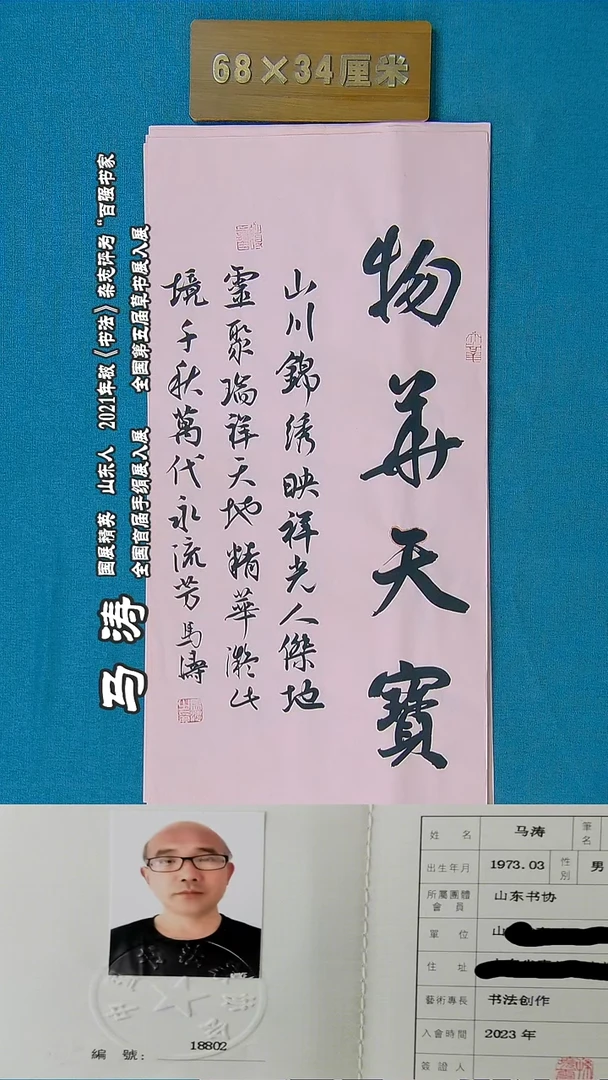 68×34厘米
物華天寶
山川錦綉映祥光人傑地
靈聚瑞祥天地精華凝此
境千秋萬代永流芳 馬濤
马涛
国展精英 山东人 2021年被《书法》杂志评为“百强书家
全国首届手绢展入展 全国第五届草书展入展
編號：18802
姓名 马涛 筆名
出生年月 1973.03 性別 男
所屬團體會員 山东书协
單位 山
住址
藝術專長 书法创作
入會時間 2023年
簽證人